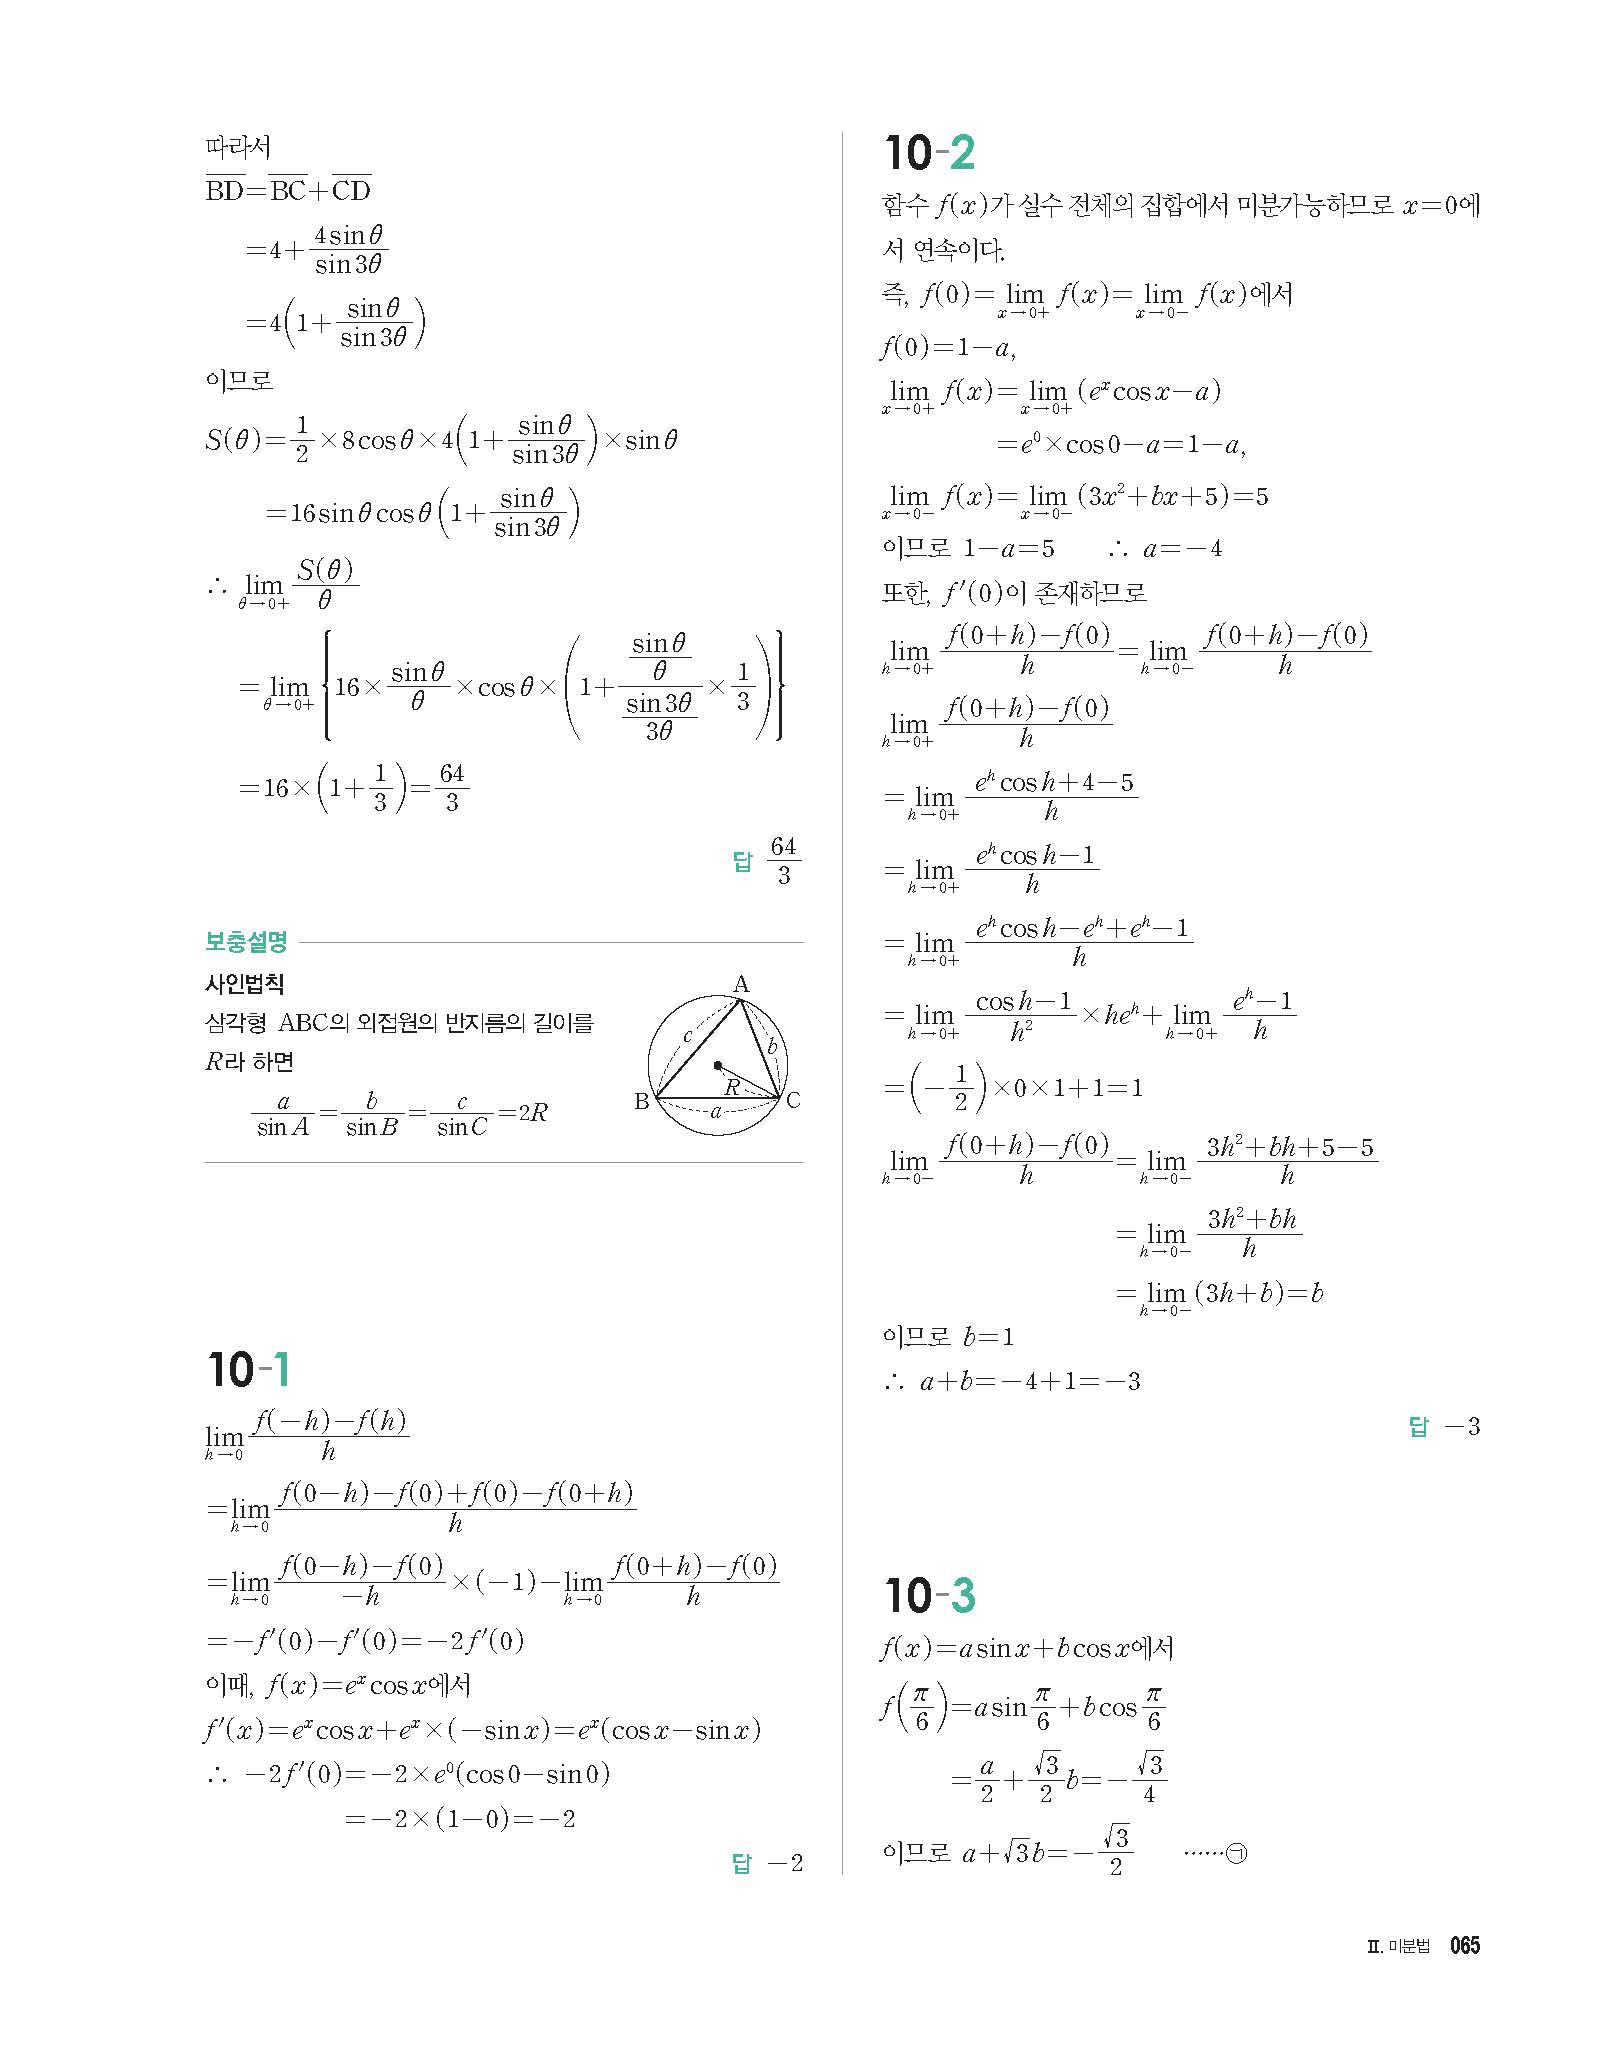 따라서
$\overline{BD}=\overline{BC}+\overline{CD}$
$=4+\frac{4\sin\theta}{\sin 3\theta}$
$=4\left(1+\frac{\sin\theta}{\sin 3\theta}\right)$
이므로
$S(\theta)=\frac{1}{2}\times 8\cos\theta\times 4\left(1+\frac{\sin\theta}{\sin 3\theta}\right)\times\sin\theta$
$=16\sin\theta\cos\theta\left(1+\frac{\sin\theta}{\sin 3\theta}\right)$
$\therefore \lim_{\theta\to 0+}\frac{S(\theta)}{\theta}$
$=\lim_{\theta\to 0+}\left\{16\times\frac{\sin\theta}{\theta}\times\cos\theta\times\left(1+\frac{\frac{\sin\theta}{\theta}}{\frac{\sin 3\theta}{3\theta}}\times\frac{1}{3}\right)\right\}$
$=16\times\left(1+\frac{1}{3}\right)=\frac{64}{3}$
답 $\frac{64}{3}$
보충설명
사인법칙
삼각형 ABC의 외접원의 반지름의 길이를
$R$라 하면
$\frac{a}{\sin A}=\frac{b}{\sin B}=\frac{c}{\sin C}=2R$
A
c
b
R
B
a
C
10-1
$\lim_{h\to 0}\frac{f(-h)-f(h)}{h}$
$=\lim_{h\to 0}\frac{f(0-h)-f(0)+f(0)-f(0+h)}{h}$
$=\lim_{h\to 0}\frac{f(0-h)-f(0)}{-h}\times(-1)-\lim_{h\to 0}\frac{f(0+h)-f(0)}{h}$
$=-f'(0)-f'(0)=-2f'(0)$
이때, $f(x)=e^x\cos x$에서
$f'(x)=e^x\cos x+e^x\times(-\sin x)=e^x(\cos x-\sin x)$
$\therefore -2f'(0)=-2\times e^0(\cos 0-\sin 0)$
$=-2\times(1-0)=-2$
답 $-2$
10-2
함수 $f(x)$가 실수 전체의 집합에서 미분가능하므로 $x=0$에
서 연속이다.
즉, $f(0)=\lim_{x\to 0+}f(x)=\lim_{x\to 0-}f(x)$에서
$f(0)=1-a,$
$\lim_{x\to 0+}f(x)=\lim_{x\to 0+}(e^x\cos x-a)$
$=e^0\times\cos 0-a=1-a,$
$\lim_{x\to 0-}f(x)=\lim_{x\to 0-}(3x^2+bx+5)=5$
이므로 $1-a=5$ $\therefore a=-4$
또한, $f'(0)$이 존재하므로
$\lim_{h\to 0+}\frac{f(0+h)-f(0)}{h}=\lim_{h\to 0-}\frac{f(0+h)-f(0)}{h}$
$\lim_{h\to 0+}\frac{f(0+h)-f(0)}{h}$
$=\lim_{h\to 0+}\frac{e^h\cos h+4-5}{h}$
$=\lim_{h\to 0+}\frac{e^h\cos h-1}{h}$
$=\lim_{h\to 0+}\frac{e^h\cos h-e^h+e^h-1}{h}$
$=\lim_{h\to 0+}\frac{\cos h-1}{h^2}\times he^h+\lim_{h\to 0+}\frac{e^h-1}{h}$
$=\left(-\frac{1}{2}\right)\times 0\times 1+1=1$
$\lim_{h\to 0-}\frac{f(0+h)-f(0)}{h}=\lim_{h\to 0-}\frac{3h^2+bh+5-5}{h}$
$=\lim_{h\to 0-}\frac{3h^2+bh}{h}$
$=\lim_{h\to 0-}(3h+b)=b$
이므로 $b=1$
$\therefore a+b=-4+1=-3$
답 $-3$
10-3
$f(x)=a\sin x+b\cos x$에서
$f\left(\frac{\pi}{6}\right)=a\sin\frac{\pi}{6}+b\cos\frac{\pi}{6}$
$=\frac{a}{2}+\frac{\sqrt{3}}{2}b=-\frac{\sqrt{3}}{4}$
이므로 $a+\sqrt{3}b=-\frac{\sqrt{3}}{2}$ ……㉠
Ⅱ. 미분법 065